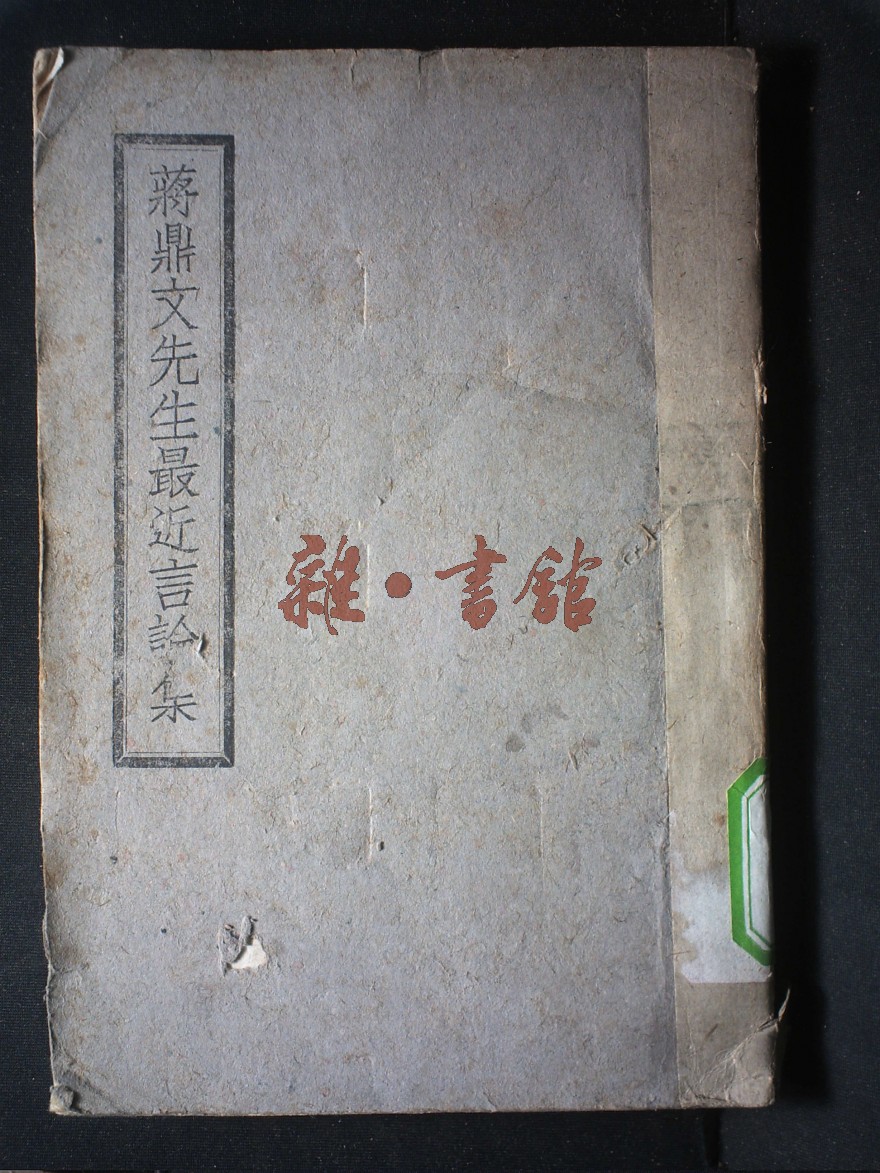 蔣鼎文先生最近言論集
雜•書館